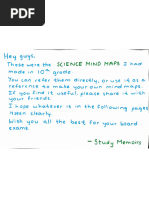 Hey guys,
These were the SCIENCE MIND MAPS I had
made in 10th grade.
You can refer them directly, or use it as a
reference to make your own mind maps.
If you find it useful, please share it with
your friends.
I hope whatever it in the following pages
Helen clearly.
Wish you all the best for your board
exams.
- Study Memoirs